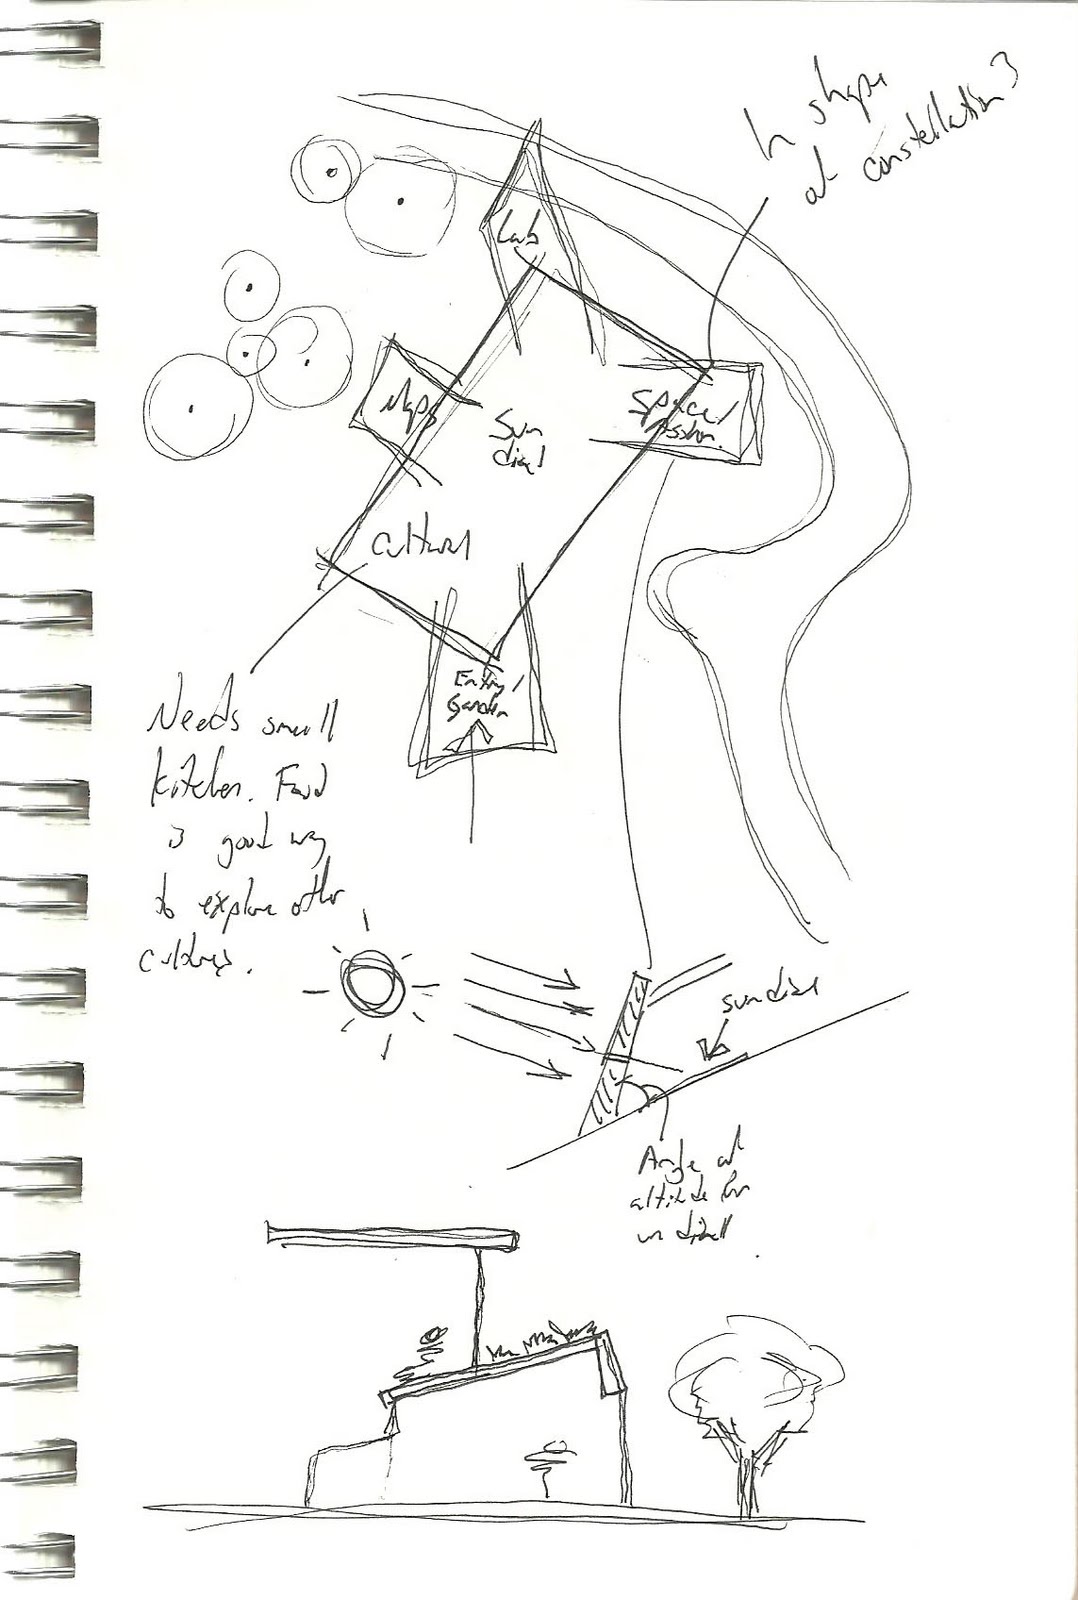 In shape
of constellation?
Lab
Maps
Space/
Sun
dial
Cultural
Entry/
Garden
Needs small
kitchen. Food
is good way
to explore other
cultures.
sundial
Angle of
altitude for
sundial